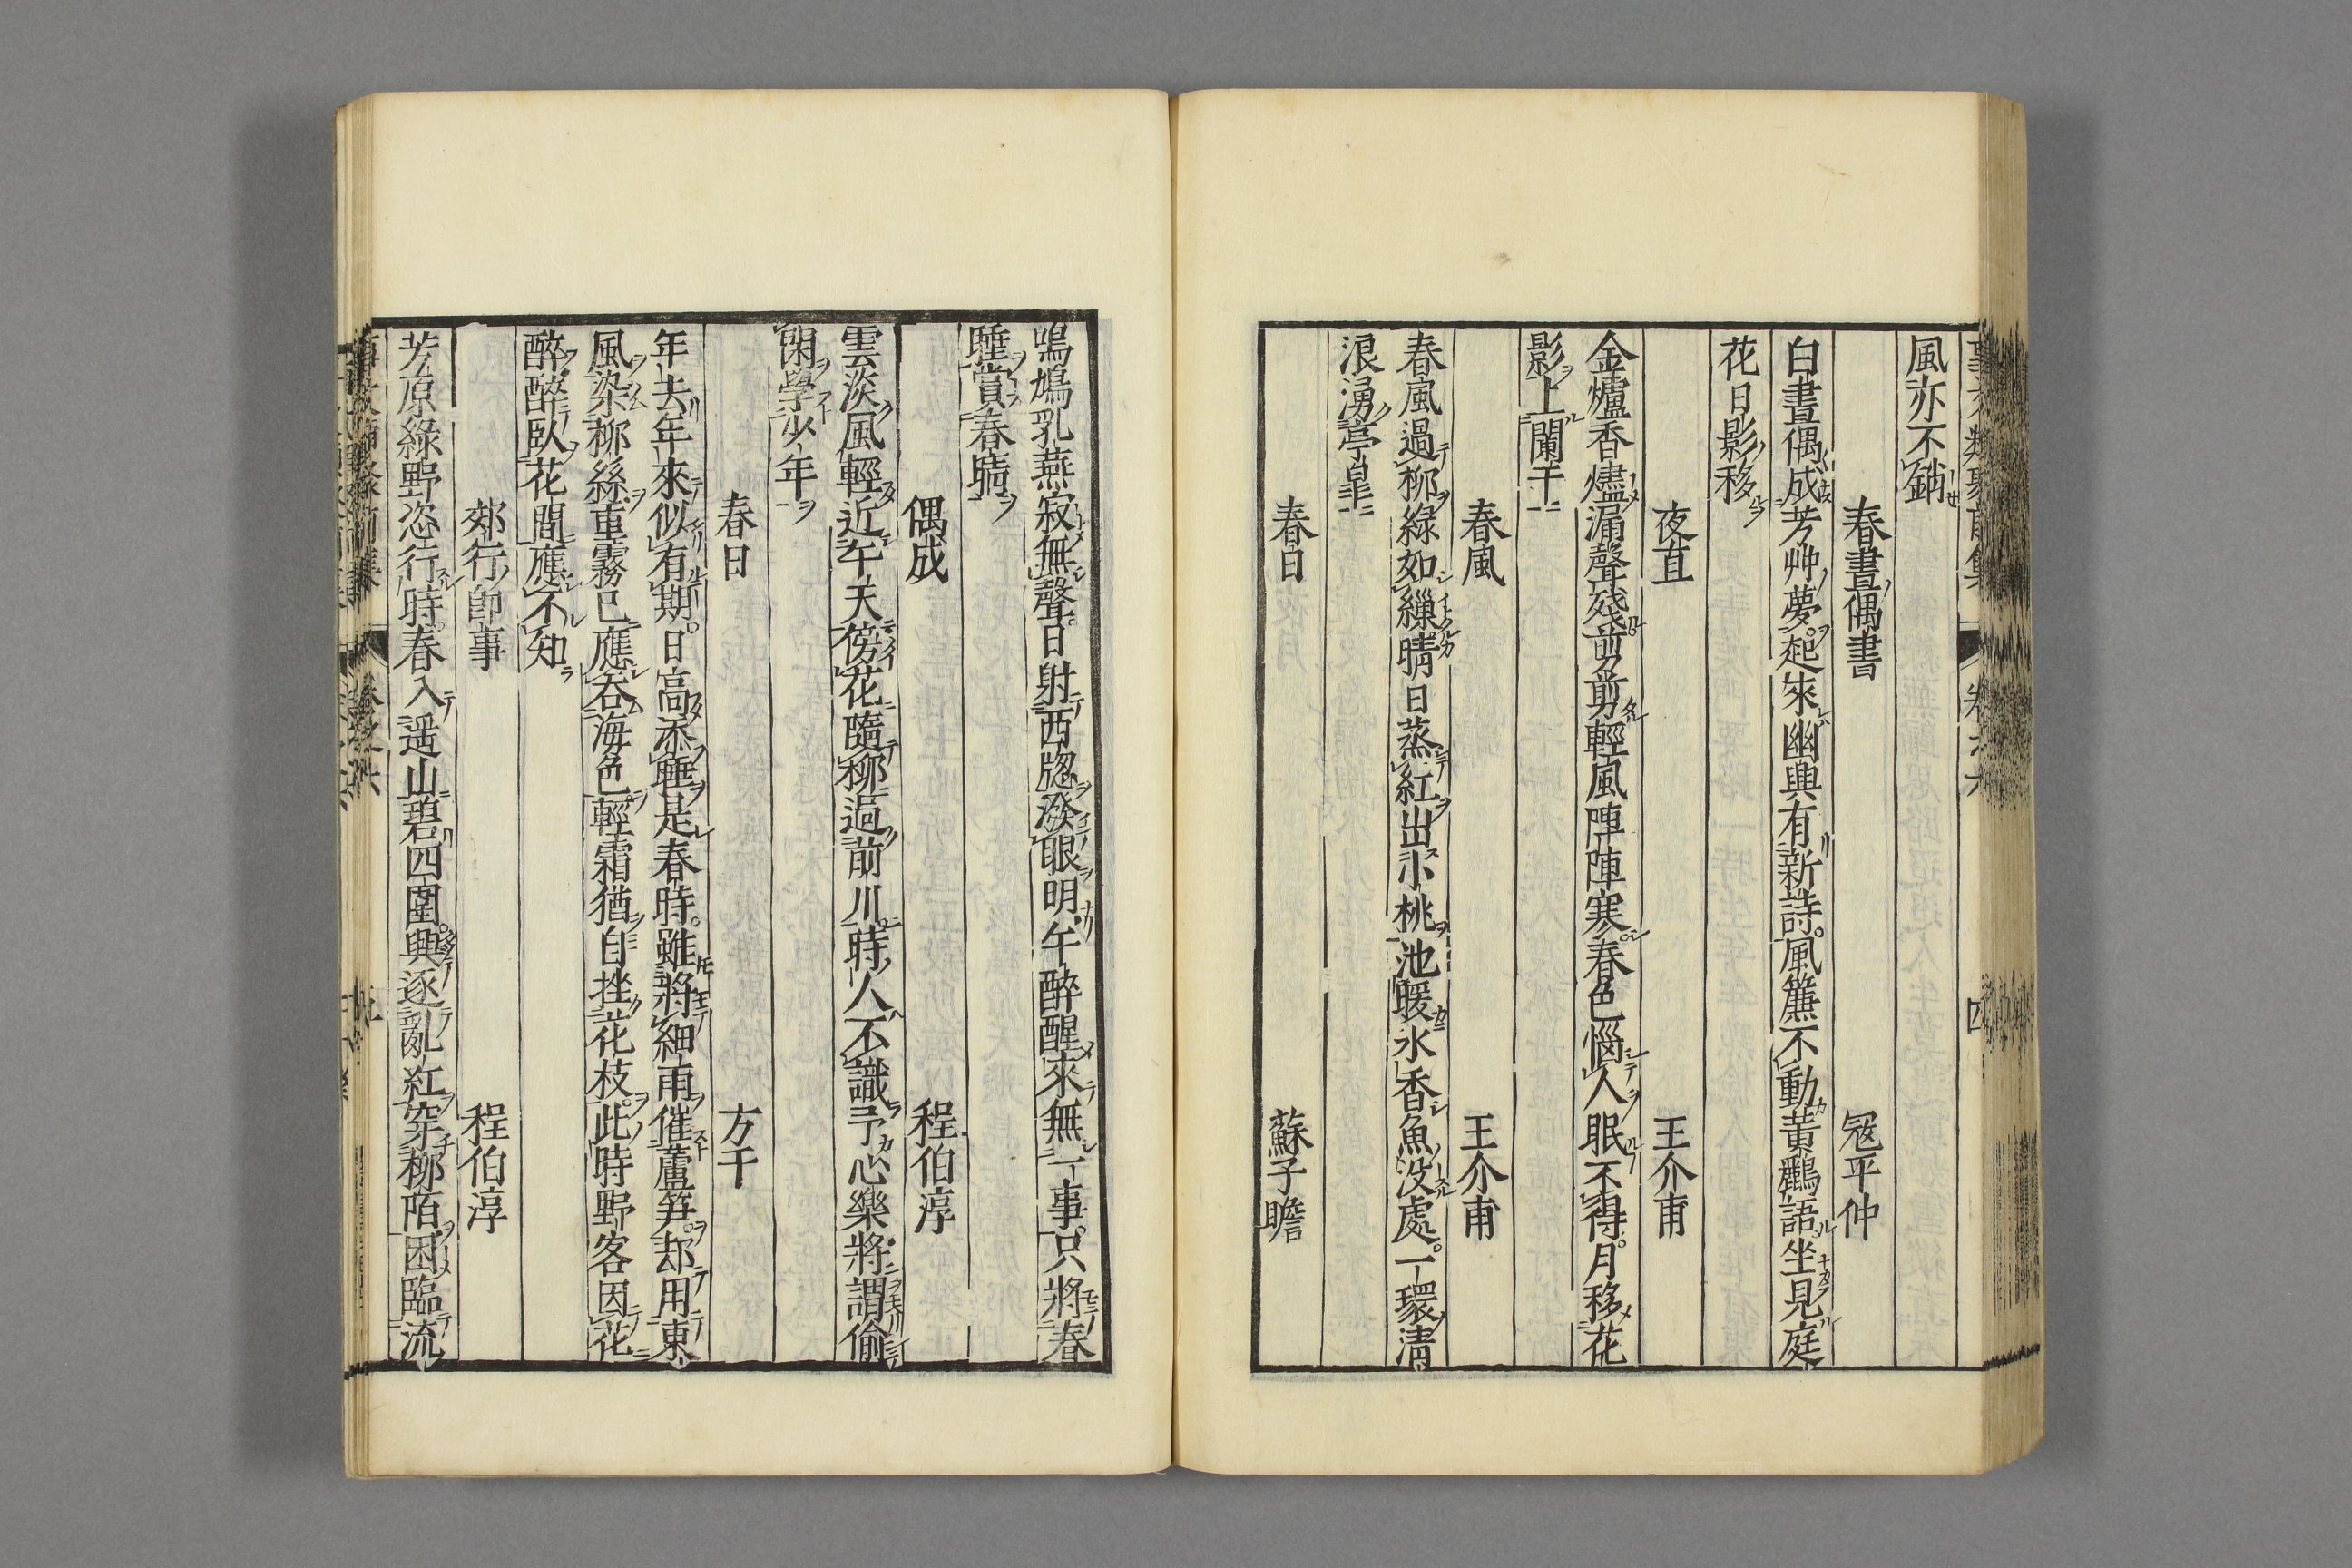 風亦不銷
春晝偶書 冦平仲
白晝偶成芳艸夢起來幽興有新詩風簾不動黃鸝語坐見庭
花日影移
夜直 王介甫
金爐香燼漏聲殘剪剪輕風陣陣寒春色惱人眠不得月移花
影上闌干
春風 王介甫
春風過柳綠如繰晴日蒸紅出小桃池暖水香魚沒處一環清
浪湧亭皐
春日 蘇子瞻
鳴鳩乳燕寂無聲日射西牎潑眼明午醉醒來無一事只將春
睡賞春晴
偶成 程伯淳
雲淡風輕近午天傍花隨柳過前川時人不識予心樂將謂偷
閑學少年
春日 方干
年去年來似有期日高添睡是春時雖將細雨催蘆笋却用東
風染柳絲重霧已應吞海色輕霜猶自挫花枝此時野客因花
醉醉臥花間應不知
郊行即事 程伯淳
芳原綠野恣行時春入遥山碧四圍興逐亂紅穿柳陌困臨流